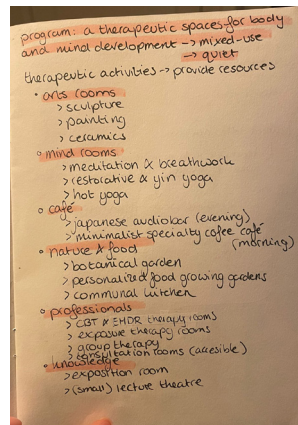 program: a therapeutic spaces for body
and mind development -> mixed-use
-> quiet
therapeutic activities -> provide resources
• arts rooms
> sculpture
> painting
> ceramics
• mind rooms
> meditation & breathwork
> restorative & yin yoga
> hot yoga
• café
> japanese audiobar (evening)
> minimalist specialty cofee café
(morning)
• nature & food
> botanical garden
> personalized food growing gardens
> communal kitchen
• professionals
> CBT & EHDR therapy rooms
> exposure therapy rooms
> group therapy
> consultation rooms (accesible)
• knowledge
> exposition room
> (small) lecture theatre